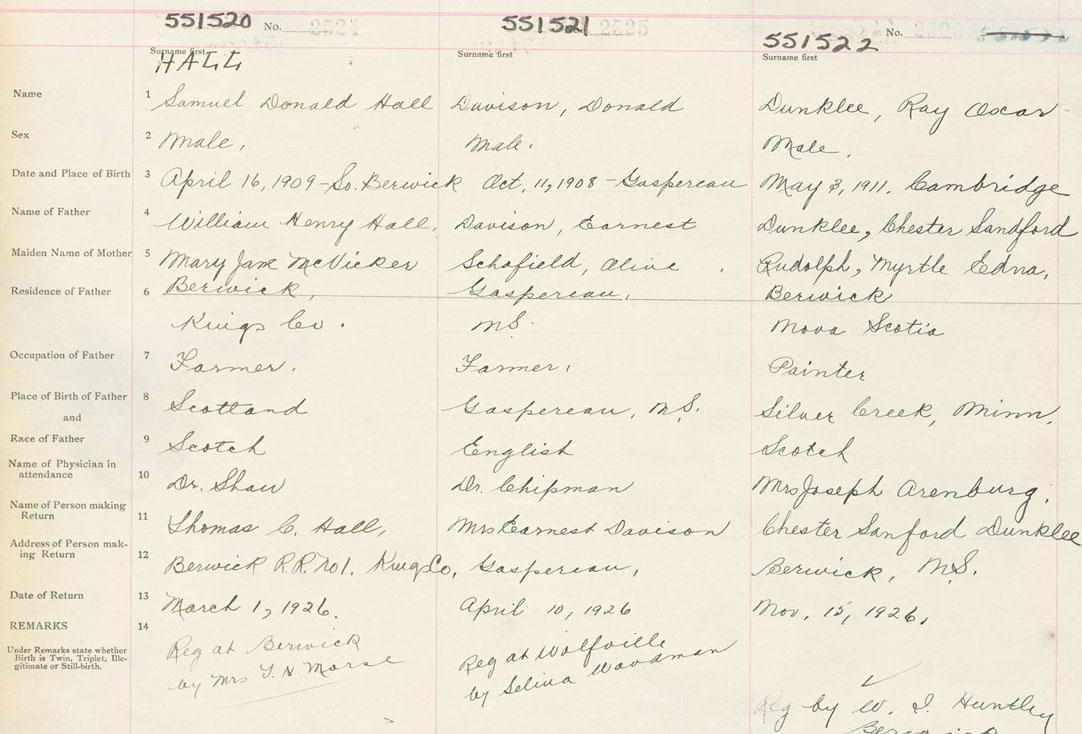 551520 No. 2524 551521 2525 551522 No.
Surname first Surname first Surname first
HALL
Name 1 Samuel Donald Hall Davison, Donald Dunklee, Ray Oscar
Sex 2 Male, Male. Male,
Date and Place of Birth 3 April 16, 1909 - So. Berwick Oct, 11, 1908 - Gaspereau May 3, 1911. Cambridge
Name of Father 4 William Henry Hall, Davison, Earnest Dunklee, Chester Sandford
Maiden Name of Mother 5 Mary Jane McVicker Schofield, Olive Rudolph, Myrtle Edna,
Residence of Father 6 Berwick, Gaspereau, Berwick
Kings Co. N.S. Nova Scotia
Occupation of Father 7 Farmer. Farmer, Painter
Place of Birth of Father 8 Scotland Gaspereau, N.S. Silver Creek, Minn,
and
Race of Father 9 Scotch English Scotch
Name of Physician in attendance 10 Dr. Shaw Dr. Chipman Mrs Joseph Arenburg,
Name of Person making Return 11 Thomas C. Hall, Mrs Earnest Davison Chester Sanford Dunklee
Address of Person mak-ing Return 12 Berwick R.R. No 1. King Co, Gaspereau, Berwick, N.S.
Date of Return 13 March 1, 1926. April 10, 1926 Nov. 15, 1926,
REMARKS 14
Under Remarks state whether
Birth is Twin, Triplet, Ille-
gitimate or Still-birth.
Reg at Berwick
by Mrs T. H. Morse
Reg at Wolfville
by Selina Woodman
Reg by W. I. Huntley
Berwick